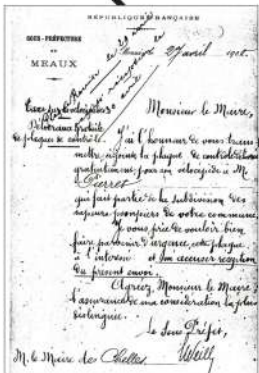 RÉPUBLIQUE FRANÇAISE
SOUS-PRÉFECTURE
DE
MEAUX
27 avril 190
Monsieur le Maire,
Taxe sur les vélocipèdes
Délivrance gratuite
de plaques de contrôle
J'ai l'honneur de vous trans-
mettre, ci-jointe, la plaque de contrôle délivrée
gratuitement pour son vélocipède à M.
Pierret
qui fait partie de la subdivision des
sapeurs-pompiers de votre commune.
Je vous prie de vouloir bien
faire parvenir d'urgence, cette plaque
à l'intéressé et m'en accuser réception
du présent envoi.
Agréez, Monsieur le Maire,
l'assurance de ma considération la plus
distinguée.
Le Sous-Préfet,
M. le Maire de Chelles